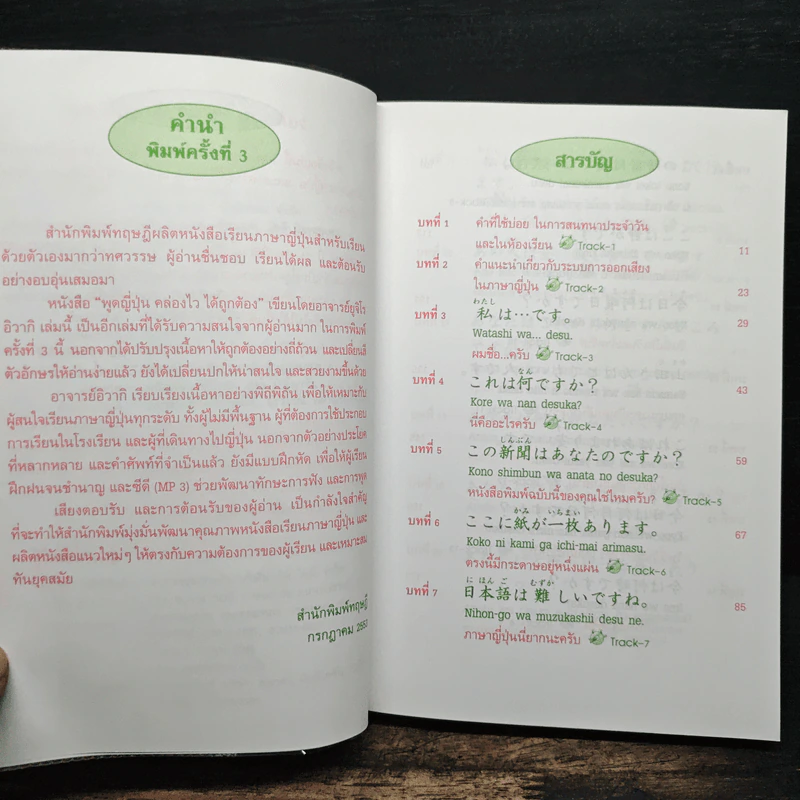 คำนำ
พิมพ์ครั้งที่ 3
สำนักพิมพ์ทฤษฎีผลิตหนังสือเรียนภาษาญี่ปุ่นสำหรับเรียน
ด้วยตัวเองมากว่าทศวรรษ ผู้อ่านชื่นชอบ เรียนได้ผล และต้อนรับ
อย่างอบอุ่นเสมอมา
หนังสือ "พูดญี่ปุ่น คล่องไว ได้ถูกต้อง" เขียนโดยอาจารย์ยุจิโร
อิวากิ เล่มนี้ เป็นอีกเล่มที่ได้รับความสนใจจากผู้อ่านมาก ในการพิมพ์
ครั้งที่ 3 นี้ นอกจากได้ปรับปรุงเนื้อหาให้ถูกต้องอย่างถี่ถ้วน และเปลี่ยนสี
ตัวอักษรให้อ่านง่ายแล้ว ยังได้เปลี่ยนปกให้น่าสนใจ และสวยงามขึ้นด้วย
อาจารย์อิวากิ เรียบเรียงเนื้อหาอย่างพิถีพิถัน เพื่อให้เหมาะกับ
ผู้สนใจเรียนภาษาญี่ปุ่นทุกระดับ ทั้งผู้ไม่มีพื้นฐาน ผู้ที่ต้องการใช้ประกอบ
การเรียนในโรงเรียน และผู้ที่เดินทางไปญี่ปุ่น นอกจากตัวอย่างประโยค
ที่หลากหลาย และคำศัพท์ที่จำเป็นแล้ว ยังมีแบบฝึกหัด เพื่อให้ผู้เรียน
ฝึกฝนจนชำนาญ และซีดี (MP 3) ช่วยพัฒนาทักษะการฟัง และการพูด
เสียงตอบรับ และการต้อนรับของผู้อ่าน เป็นกำลังใจสำคัญ
ที่จะทำให้สำนักพิมพ์มุ่งมั่นพัฒนาคุณภาพหนังสือเรียนภาษาญี่ปุ่น และ
ผลิตหนังสือแนวใหม่ๆ ให้ตรงกับความต้องการของผู้เรียน และเหมาะสม
ทันยุคสมัย
สำนักพิมพ์ทฤษฎี
กรกฎาคม 2553
สารบัญ
บทที่ 1 คำที่ใช้บ่อย ในการสนทนาประจำวัน
และในห้องเรียน Track-1 11
บทที่ 2 คำแนะนำเกี่ยวกับระบบการออกเสียง
ในภาษาญี่ปุ่น Track-2 23
わたし
บทที่ 3 私は…です。 29
Watashi wa... desu.
ผมชื่อ...ครับ Track-3
なん
บทที่ 4 これは何ですか？ 43
Kore wa nan desuka?
นี่คืออะไรครับ Track-4
しんぶん
บทที่ 5 この新聞はあなたのですか？ 59
Kono shimbun wa anata no desuka?
หนังสือพิมพ์ฉบับนี้ของคุณใช่ไหมครับ? Track-5
かみ いちまい
บทที่ 6 ここに紙が一枚あります。 67
Koko ni kami ga ichi-mai arimasu.
ตรงนี้มีกระดาษอยู่หนึ่งแผ่น Track-6
に ほん ご むずか
บทที่ 7 日本語は難しいですね。 85
Nihon-go wa muzukashii desu ne.
ภาษาญี่ปุ่นนี่ยากนะครับ Track-7